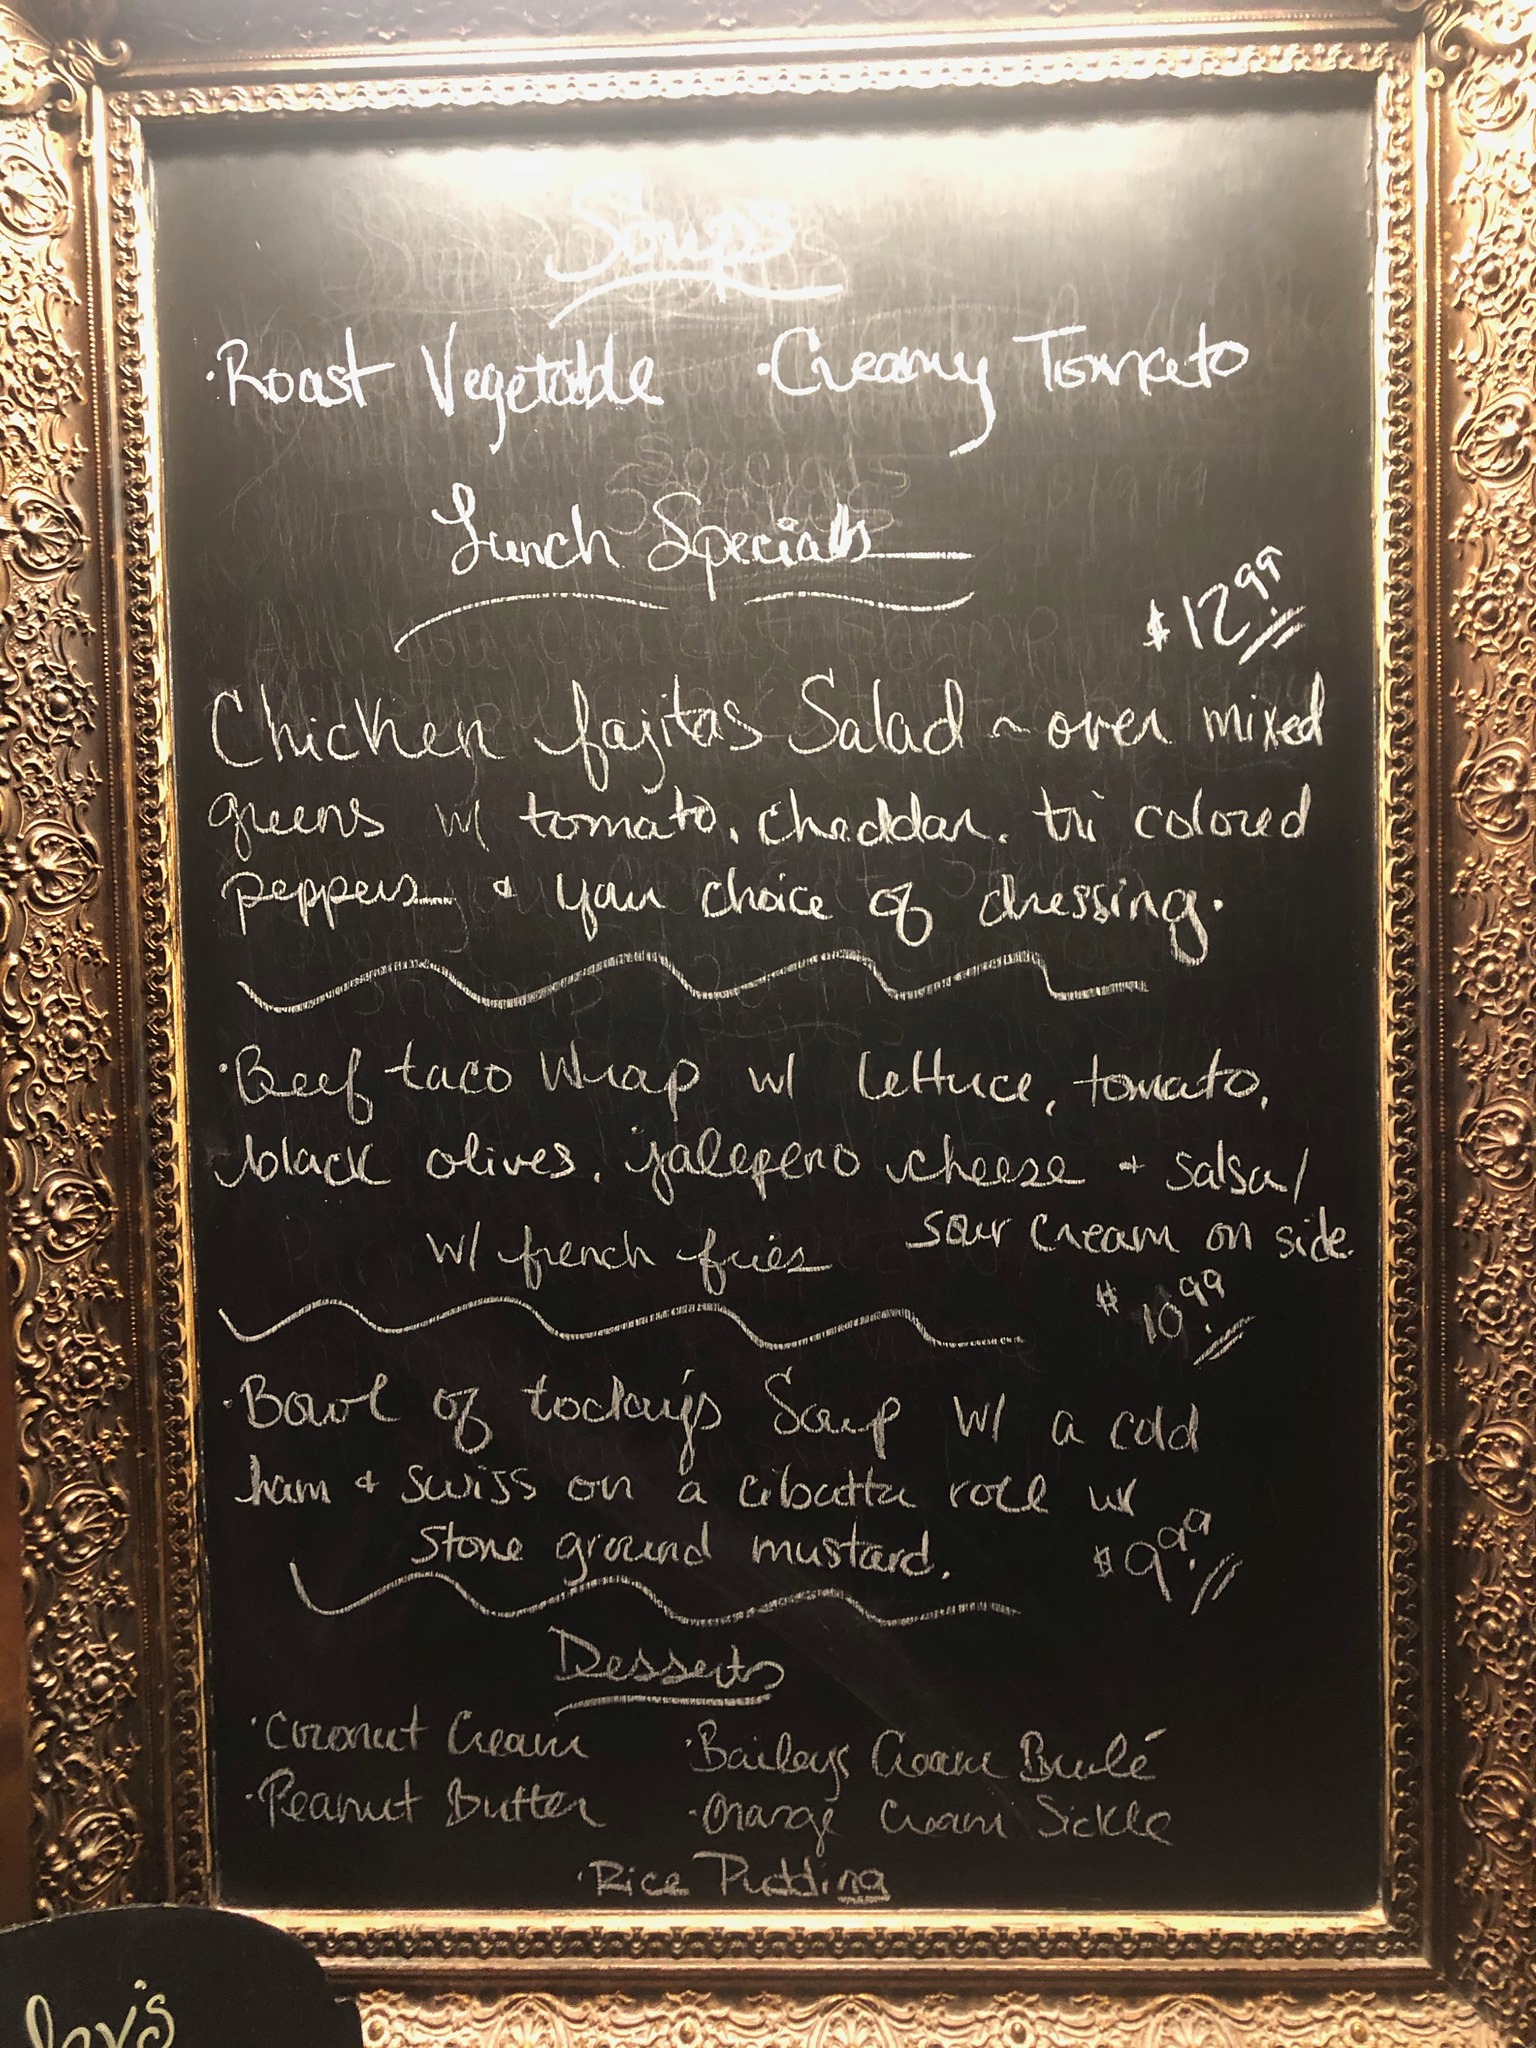 Soups
·Roast Vegetable ·Creamy Tomato
Lunch Specials
$12.99
Chicken fajitas Salad ~ over mixed
greens w/ tomato, cheddar, tri colored
peppers + your choice of dressing.
·Beef taco Wrap w/ lettuce, tomato,
black olives, jalepeno cheese + salsa/
sour cream on side.
w/ french fries
$10.99
·Bowl of today's Soup w/ a cold
ham + swiss on a cibatta roll w/
stone ground mustard.
$9.99
Desserts
·Coconut Cream ·Baileys Cream Brulé
·Peanut Butter ·Orange Cream Sickle
·Rice Pudding